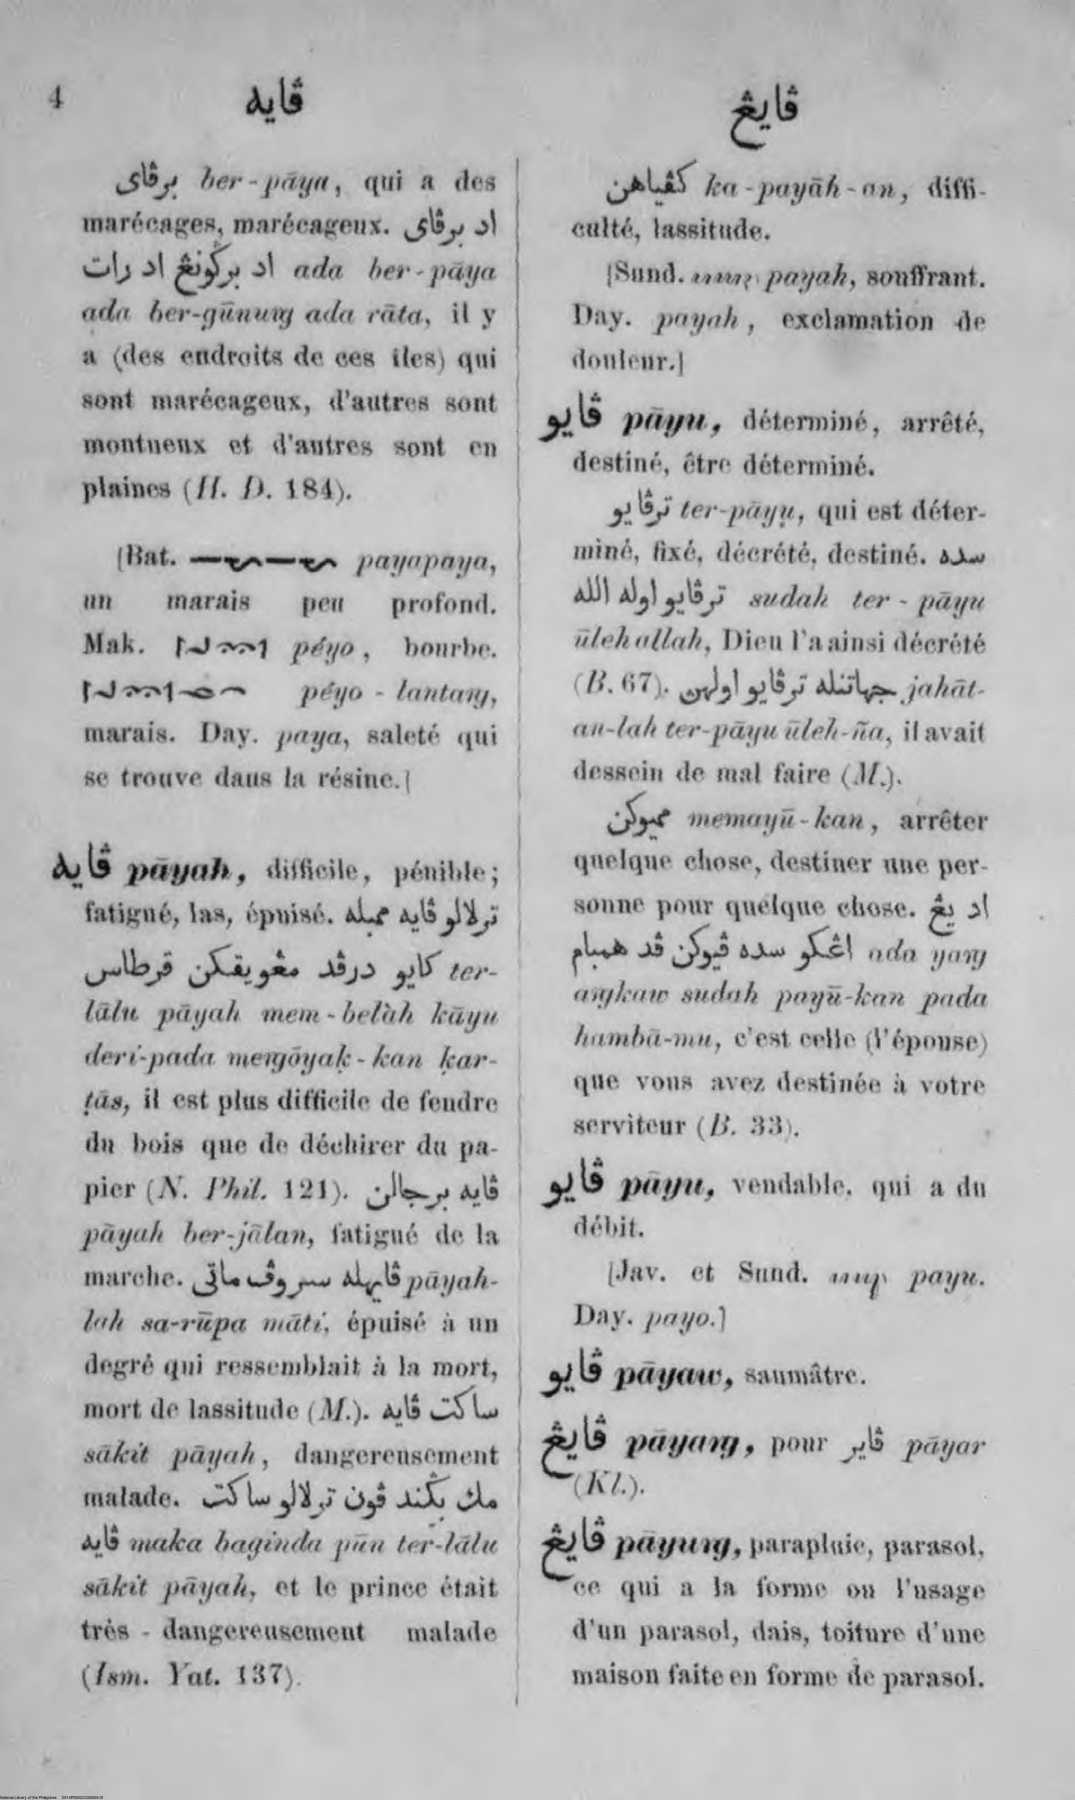 4
ڤايه
ڤايڠ
برڤاى ber-pāya, qui a des
marécages, marécageux. اد برڤاى
اد برݢونڠ اد رات ada ber-pāya
ada ber-gūnuŋg ada rāta, il y
a (des endroits de ces îles) qui
sont marécageux, d'autres sont
montueux et d'autres sont en
plaines (H. D. 184).
[Bat. payapaya,
un marais peu profond.
Mak. péyo, bourbe.
péyo-lantaŋg,
marais. Day. paya, saleté qui
se trouve dans la résine.]
ڤايه pāyah, difficile, pénible;
fatigué, las, épuisé. ترلالو ڤايه ممبله
كايو درڤد مڠويقكن قرطاس ter-
lālu pāyah mem-belàh kāyu
deri-pada meŋgōyaḳ-kan ḳar-
ṭās, il est plus difficile de fendre
du bois que de déchirer du pa-
pier (N. Phil. 121). ڤايه برجالن
pāyah ber-jālan, fatigué de la
marche. ڤايهله سروڤ ماتى pāyah-
lah sa-rūpa māti, épuisé à un
degré qui ressemblait à la mort,
mort de lassitude (M.). ساكت ڤايه
sākit pāyah, dangereusement
malade. مك بݢند ڤون ترلالو ساكت
ڤايه maka baginda pūn ter-lālu
sākit pāyah, et le prince était
très-dangereusement malade
(Ism. Yat. 137).
كڤياهن ka-payāh-an, diffi-
culté, lassitude.
[Sund. payah, souffrant.
Day. payah, exclamation de
douleur.]
ڤايو pāyu, déterminé, arrêté,
destiné, être déterminé.
ترڤايو ter-pāyu, qui est déter-
miné, fixé, décrété, destiné. سده
ترڤايو اوله الله sudah ter-pāyu
ūleh allah, Dieu l'a ainsi décrété
(B. 67). جهاتنله ترڤايو اولهن jahāt-
an-lah ter-pāyu ūleh-ña, il avait
dessein de mal faire (M.).
مميوكن memayū-kan, arrêter
quelque chose, destiner une per-
sonne pour quelque chose. اد يڠ
اڠكو سده ڤيوكن ڤد همبام ada yaŋg
aŋgkaw sudah payū-kan pada
hambā-mu, c'est celle (l'épouse)
que vous avez destinée à votre
serviteur (B. 33).
ڤايو pāyu, vendable, qui a du
débit.
[Jav. et Sund. payu.
Day. payo.]
ڤايو pāyaw, saumâtre.
ڤايڠ pāyaŋg, pour ڤاير pāyar
(Kl.).
ڤايڠ pāyuŋg, parapluie, parasol,
ce qui a la forme ou l'usage
d'un parasol, dais, toiture d'une
maison faite en forme de parasol.